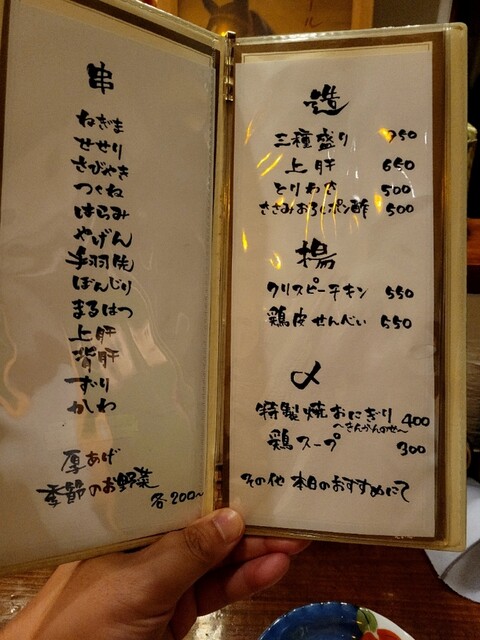 串
ねぎま
せせり
さびやき
つくね
はらみ
やげん
手羽先
ぼんじり
まるはつ
上肝
背肝
ずり
かわ
厚あげ
季節のお野菜
各200~
造
三種盛り 750
上肝 650
とりわさ 500
ささみおろしポン酢 500
揚
クリスピーチキン 550
鶏皮せんべい 550
〆
特製焼おにぎり 400
~きんかんのせ~
鶏スープ 300
その他 本日のおすすめにて
ール